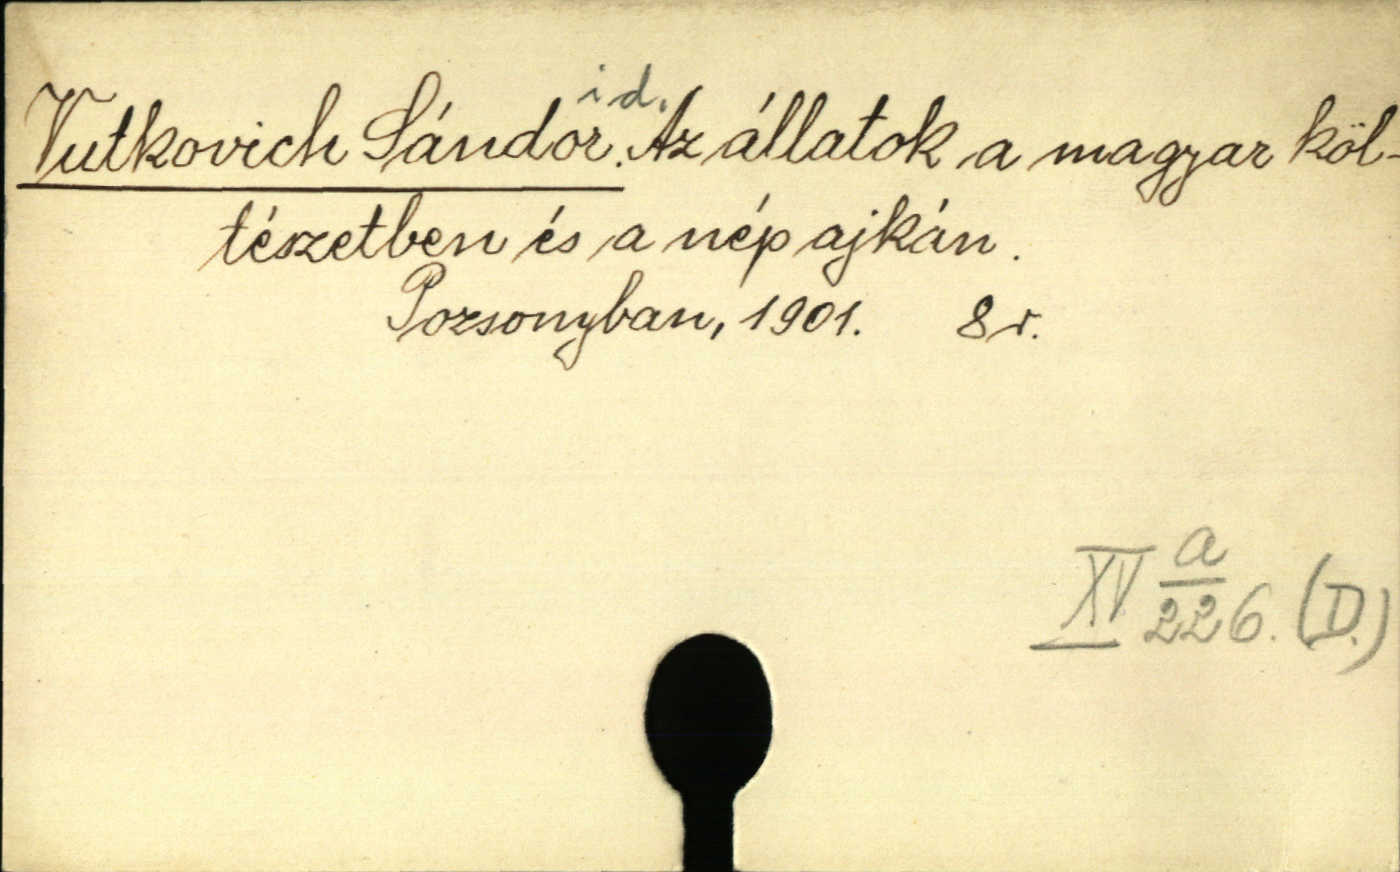 Vutkovich Sándor id. Az állatok a magyar köl-
tészetben és a nép ajkán.
Pozsonyban, 1901. 8r.
XV a/226. (D.)